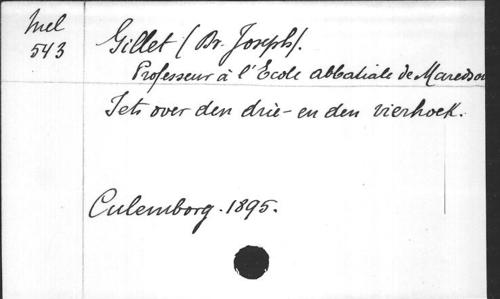 Mel
543
Gillet (Dr. Joseph).
Professeur à l'Ecole abbatiale de Maredsou
Iets over den drie- en den vierhoek.
Culemborg. 1895.